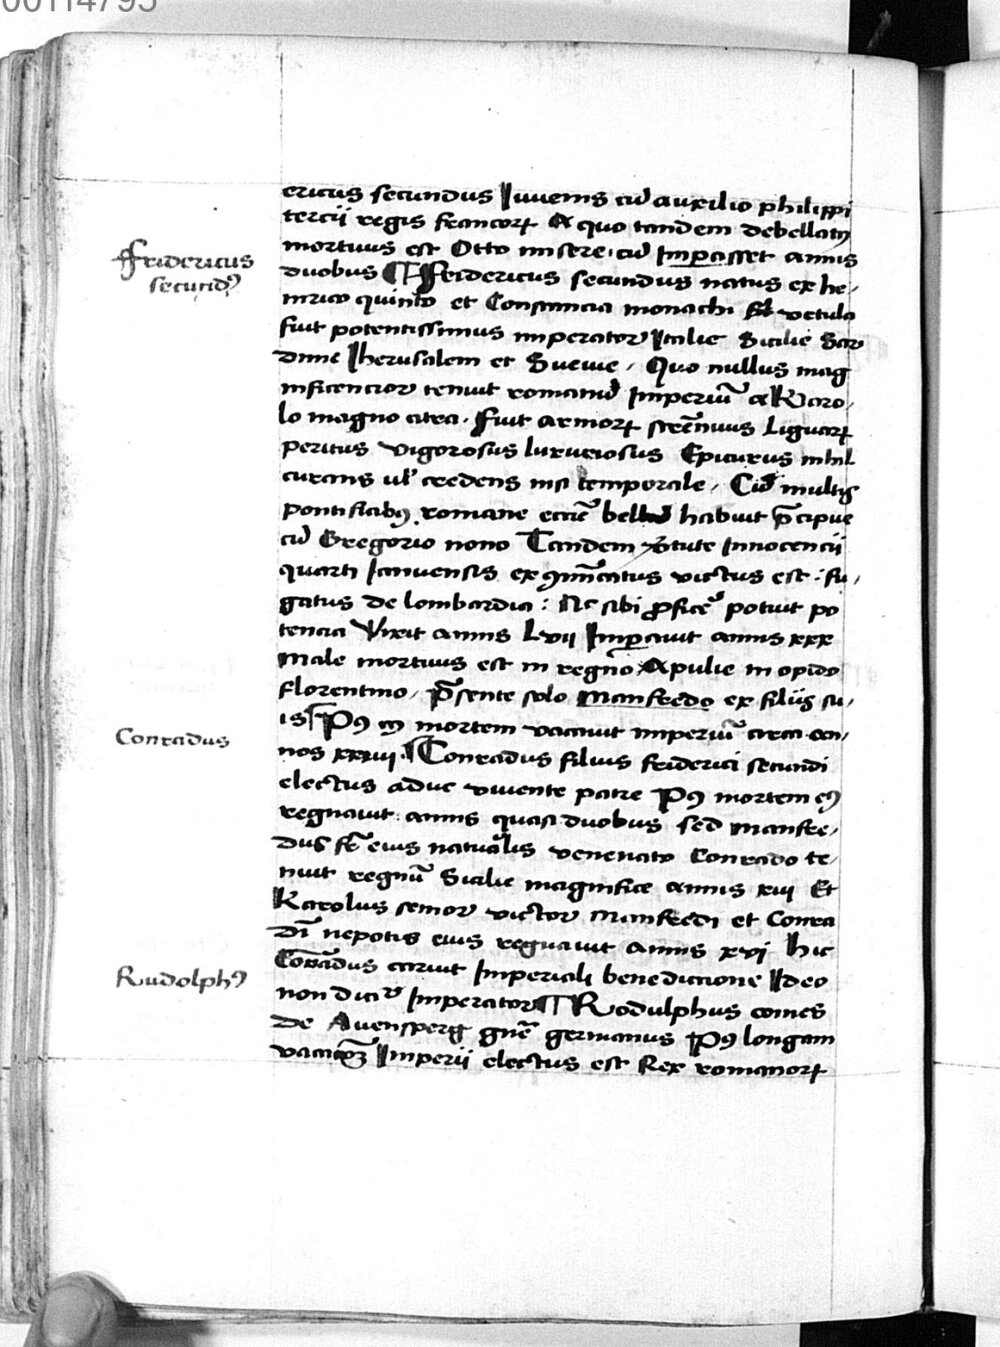 00114795
ericus secundus Iuuenis cū auxilio philippi
tercii regis francoꝝ A quo tandem debellatꝰ
mortuus est Otto misere cū Imꝑasset annis
Fridericus
secundꝰ
duobus ¶ Fridericus secundus natus ex he-
nrico quinto et Constancia monacha et vetula
fuit potentissimus imperator Italie Sicilie Sar
dinie Iherusalem et Sueuie, Quo nullus mag
nificencior tenuit romanū Imperiū a Karo-
lo magno citra. Fuit armoꝝ strēnuus Liguarꝝ
peritus vigorosus luxuriosus Epicurus nihil
curans ul' credens nisi temporale, Cū multis
pontificibꝫ romane eccīe bellū habuit p̄cipue
cū Gregorio nono Tandem v̓tute Innocencii
quarti Ianuensis excōmūicatus victus est: fu-
gatus de lombardia: Nc sibi ꝓficeˀ potuit po
tencia Vixit annis Lvii Imꝑauit annis xxx
male mortuus est in regno Apulie in opido
florentino, p̄sente solo Manfredo ex filiis su-
is ¶ Pꝰ cuꝰ mortem vacauit imperiū circa an-
Conradus
nos xxxiii ¶ Conradus filius friderici secundi
electus aduc viuente patre Pꝰ mortem eꝰ
regnauit annis quasi duobus sed manfre-
dus fr̄ eius natur̄alis venenato Conrado te-
nuit regnū Sicilie magnifice annis xiii Et
Karolus senior victor Manfredi et Conra
dī nepotis eius regnauit annis xvi hic
Rudolphꝰ
Conradus caruit Imperiali benedictione Ideo
non dicit̉ Imperator ¶ Rodulphus comes
de Auensperg gn̄e germanus Pꝰ longam
vacac̄oꝫ Imperii electus est Rex romanoꝝ